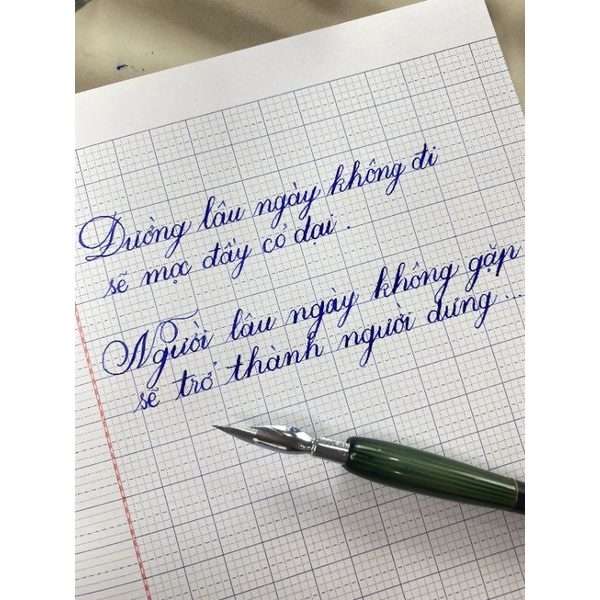 Đường lâu ngày không đi
sẽ mọc đầy cỏ dại.
Người lâu ngày không gặp
sẽ trở thành người dưng...